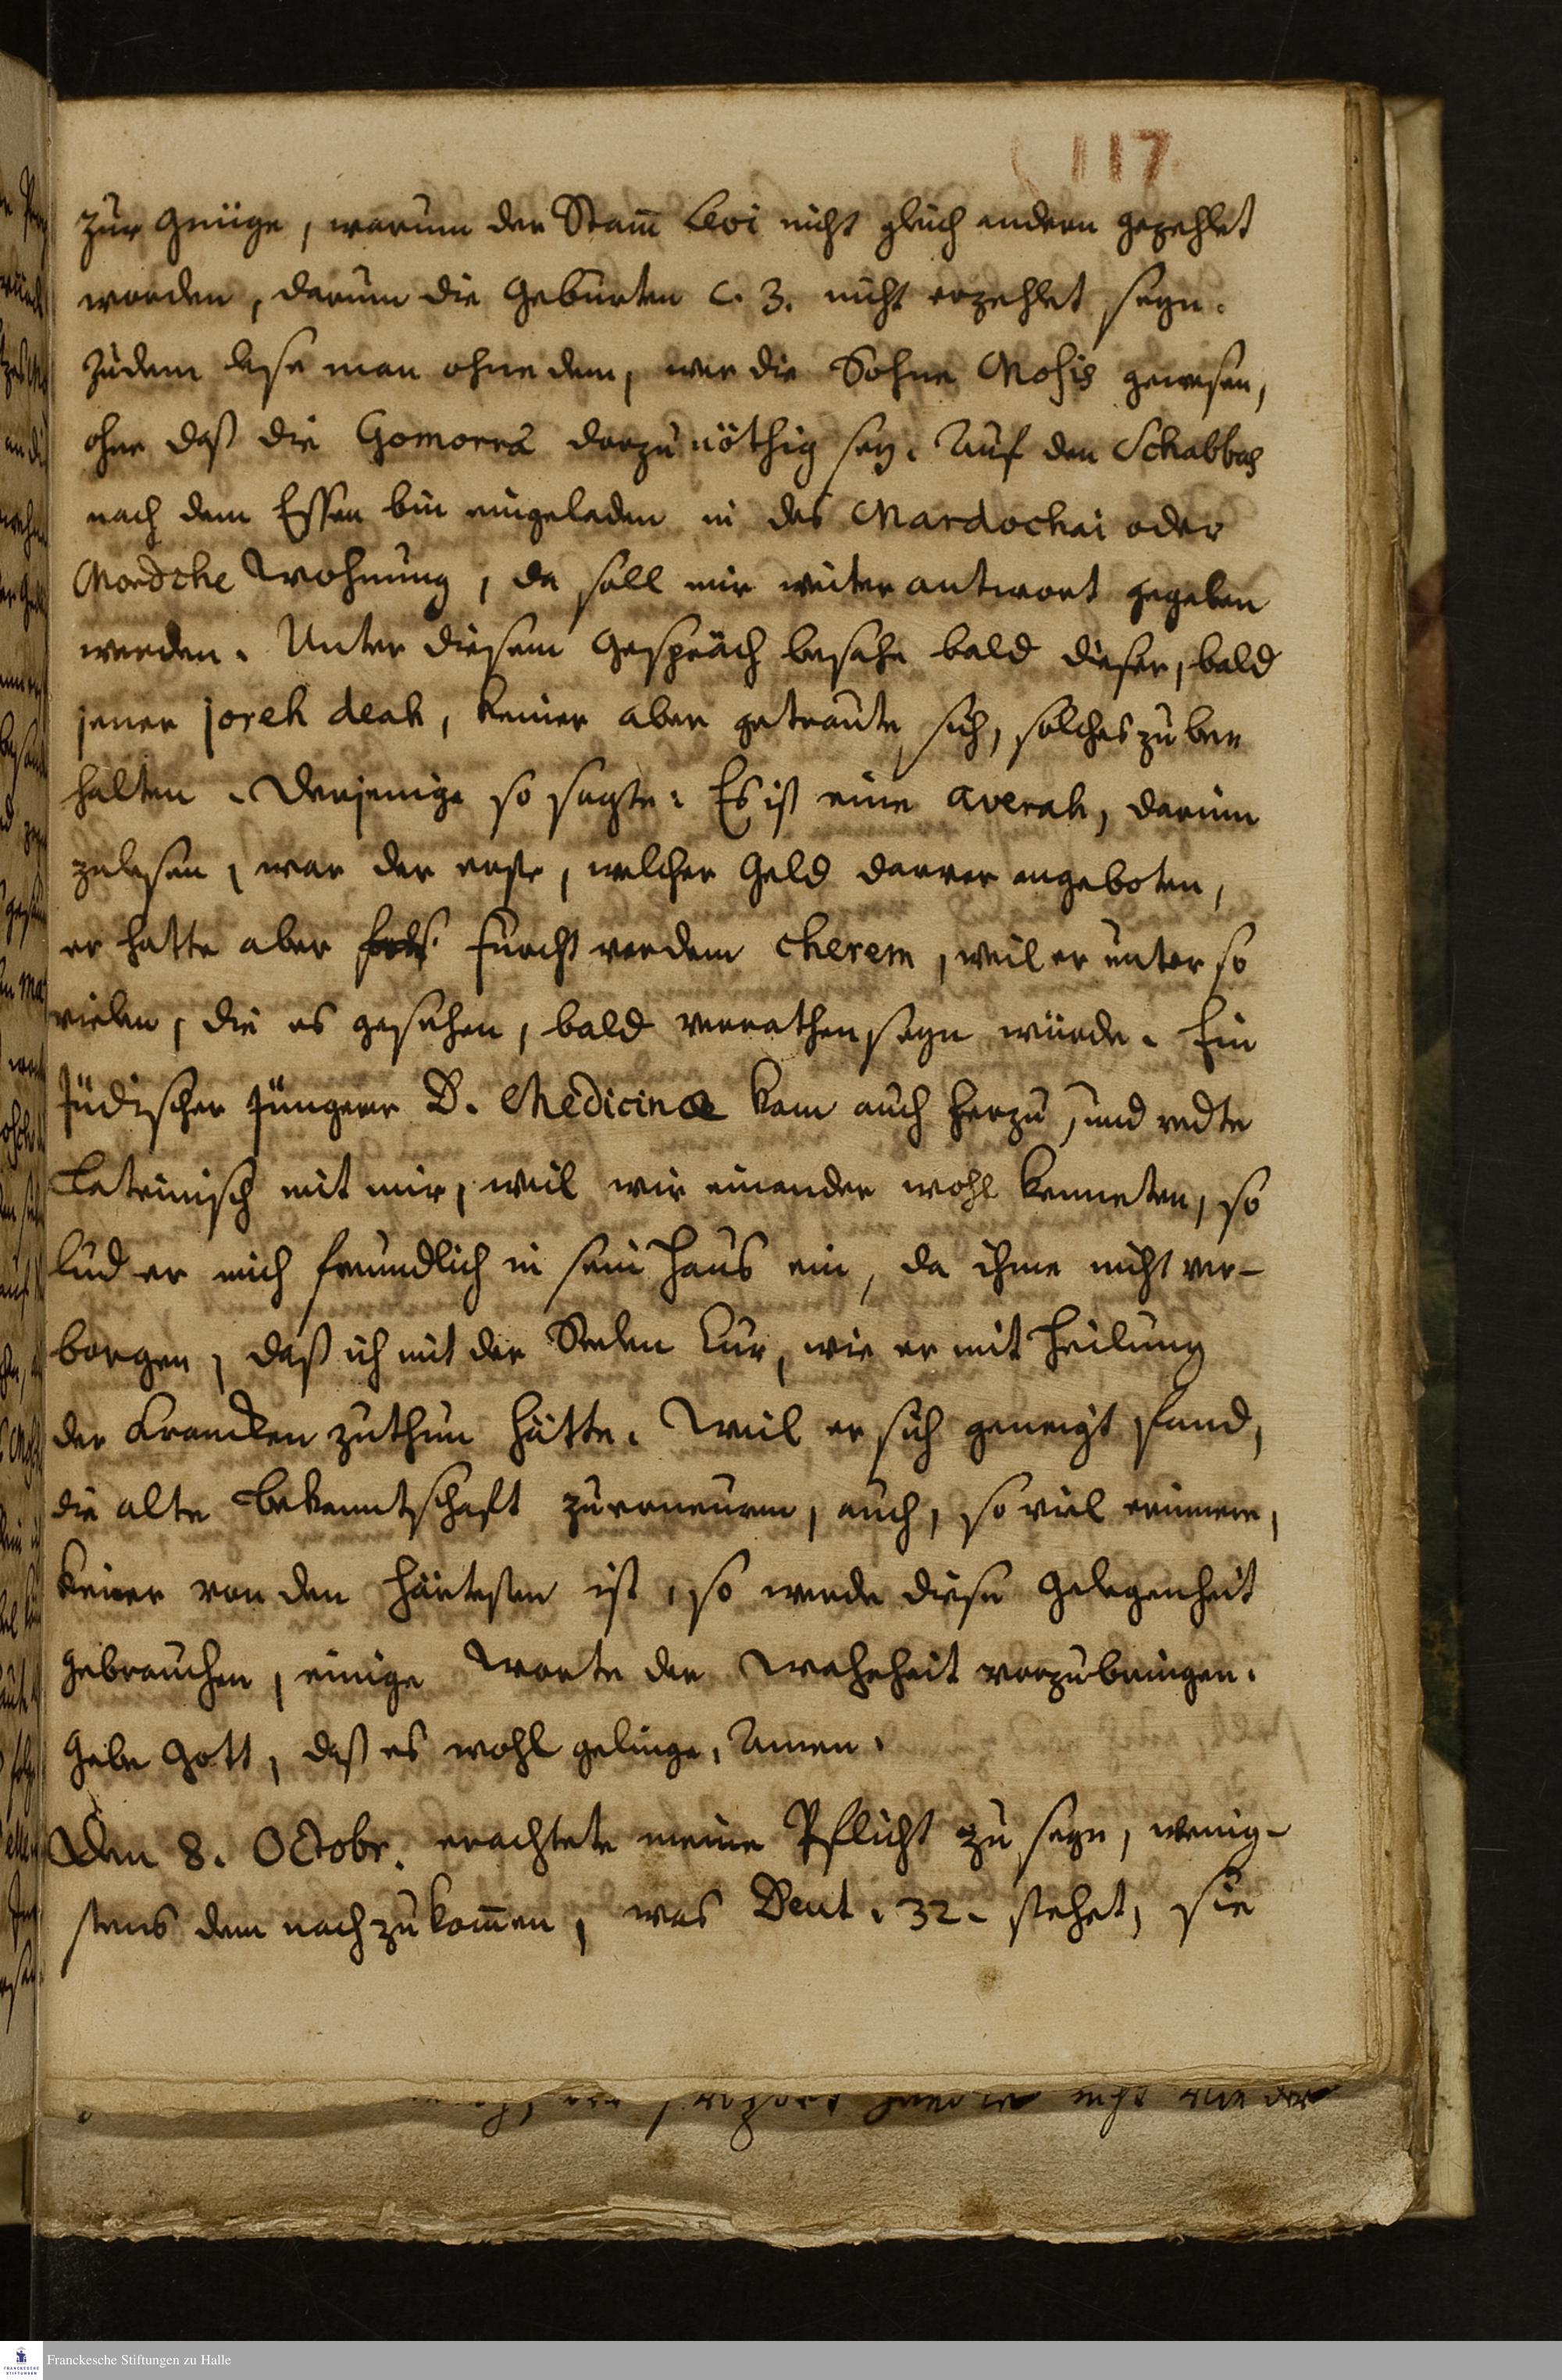 117
zur genüge, warum der Stam̄ Levi nicht gleich andern gezehlet
worden, darum die Geburten C. 3. nicht erzehlet seyn.
Zudem lese man ohne dem, wer die Söhne Mosis gewesen,
ohne daß die Gomorra darzu nöthig sey. Auf den Schabbas
nach dem Essen bin eingeladen in des Mardochai oder
Mordche Wohnung, da soll mir weiter antwort gegeben
werden. Unter diesem Gespräch besahe bald dieser, bald
jener joreh deah, keiner aber getraute sich, solches zu be
halten. Derjenige so sagte: Es ist eine averah, darinn
zulesen, war der erste, welcher Geld darvor angeboten,
er hatte aber furcht vor dem Cherem, weil er unter so
vielen, die es gesehen, bald verrathen seyn würde. Ein
Jüdischer jüngerer D. Medicinae kam auch herzu, und redte
Lateinisch mit mir, weil wir einander wohl kenneten, so
lud er mich freundlich in sein Haus ein, da ihme nicht ver-
borgen, daß ich mit der Seelen Cur, wie er mit Heilung
der Krancken zuthun hätte. Weil er sich geneigt fand,
die alte Bekanntschaft zuerneuren, auch, so viel erinnere,
keiner von den härtesten ist, so werde diese Gelegenheit
gebrauchen, einige Worte der Wahrheit vorzubringen.
Gebe Gott, daß es wohl gelinge, Amen.
Den 8. Octobr. erachtete meine Pflicht zu seyn, wenig-
stens dem nachzukom̄en, was Deut. 32. stehet, sie
Franckesche Stiftungen zu Halle